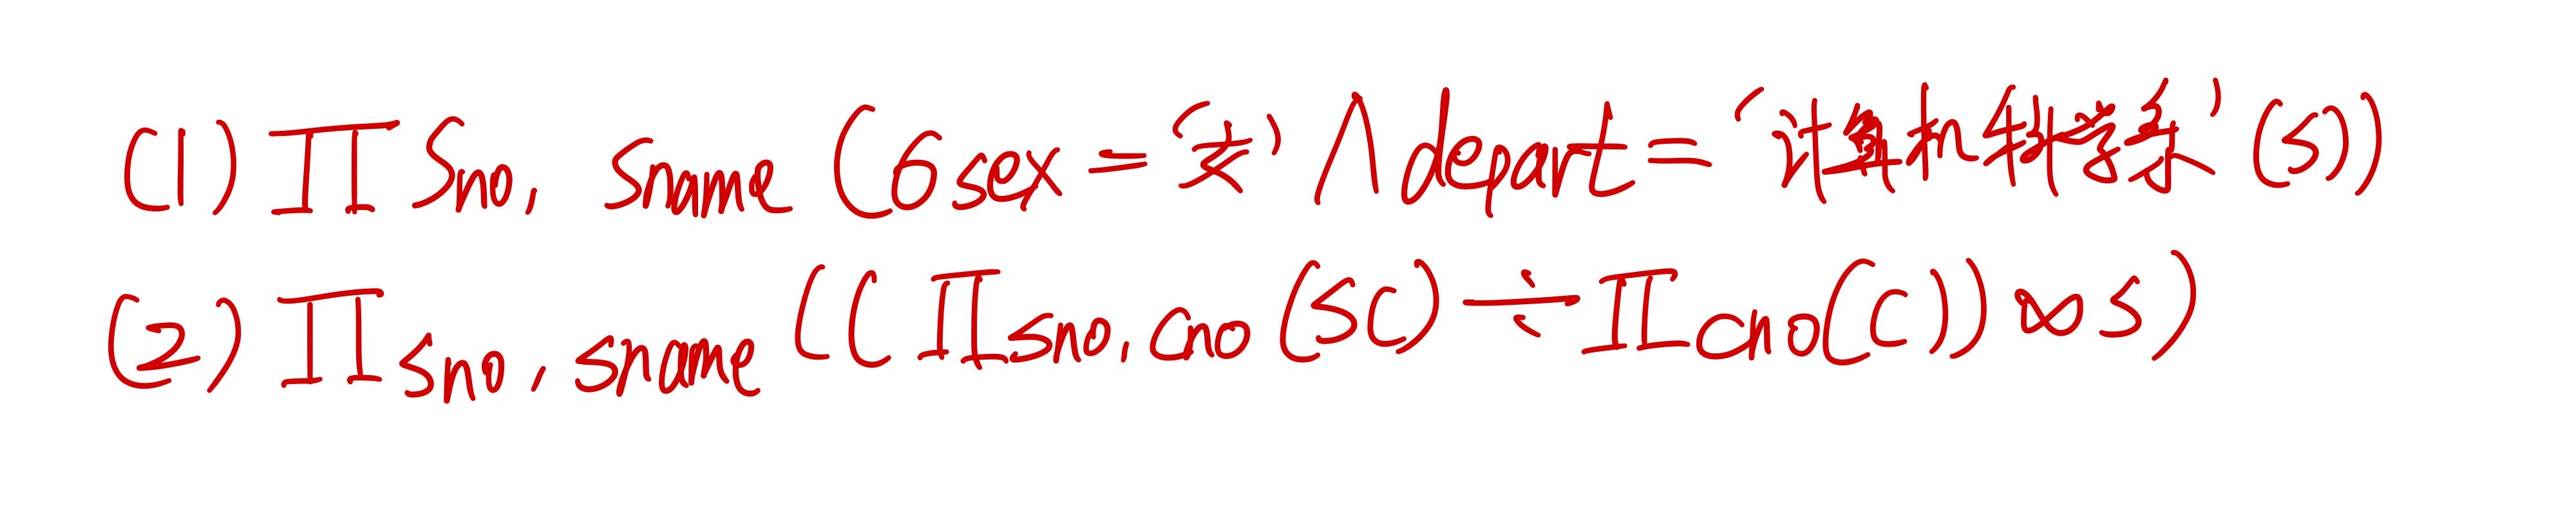 (1) Π Sno, Sname (σ sex = '女' ∧ depart = '计算机科学系' (S))
(2) Π Sno, sname ((Π Sno, Cno (SC) ÷ Π Cno (C)) ∞ S)